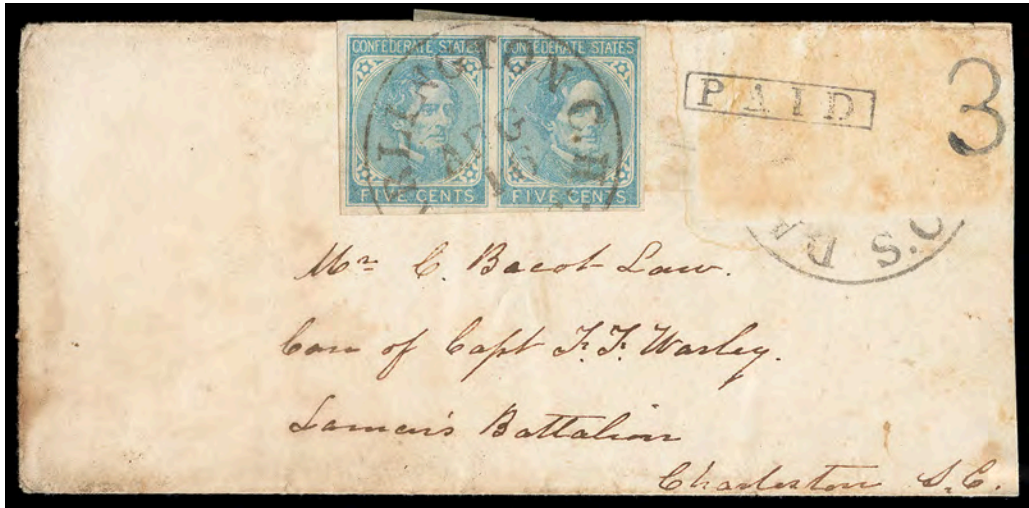 CONFEDERATE STATES CONFEDERATE STATES
FIVE CENTS FIVE CENTS
PAID
3
S.C.
Mr. C. Bacot Law.
Care of Capt F. F. Warley.
Lamar's Battalion
Charleston S.C.